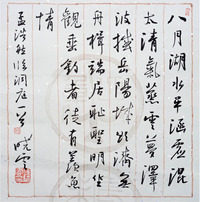 八月湖水平涵虛混
太清氣蒸雲夢澤
波撼岳陽城欲濟無
舟楫端居耻聖明坐
觀垂釣者徒有羡魚
情
孟浩然臨洞庭
曉雲